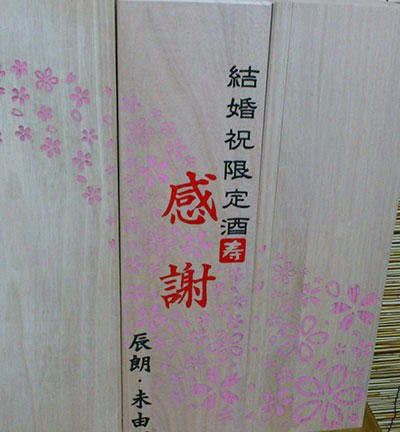 結婚祝限定酒
寿
感謝
辰朗・未由